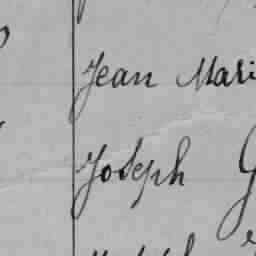 Jean Mari
Joseph G